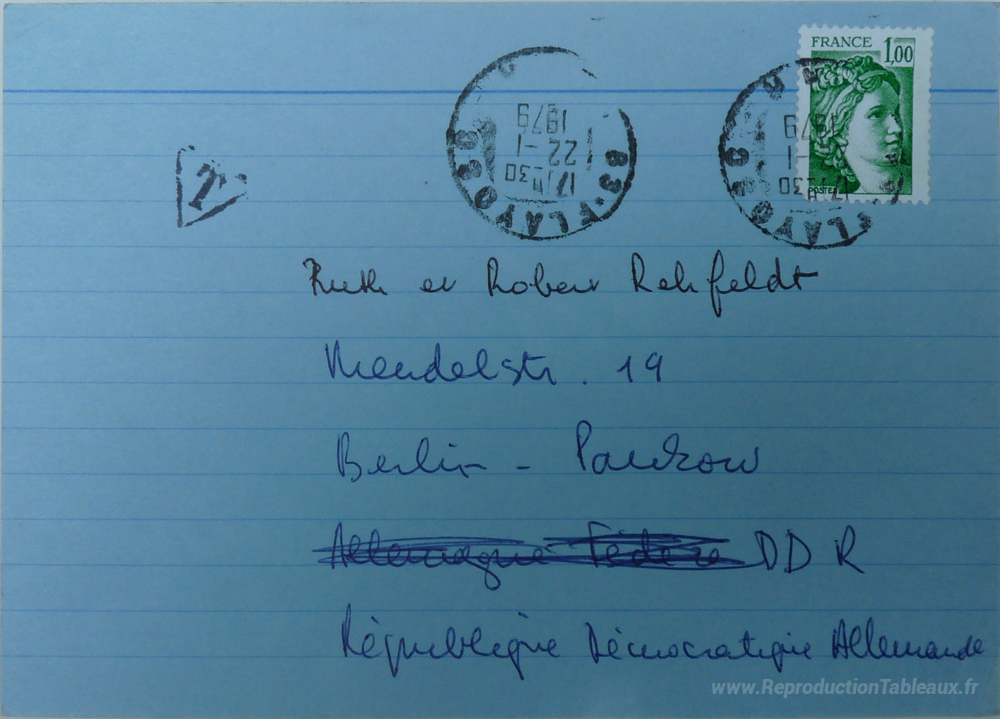 FRANCE 1,00
POSTES
17 H 30
22 -1
1979
83 - FLAYOSC
17 H 30
-1
1979
FLAYOSC
T
Ruth et Robert Rehfeldt
Mendelstr. 19
Berlin - Pankow
Allemagne Fédéra DDR
République Démocratique Allemande
www.ReproductionTableaux.fr